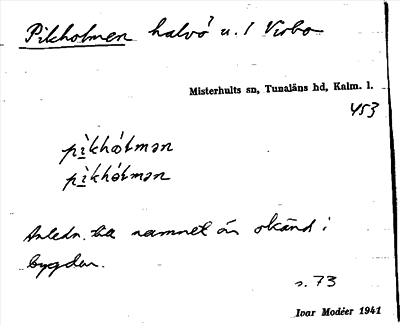 Pikholmen halvö u. 1 Virbo
Misterhults sn, Tunaläns hd, Kalm. l.
453
pìkhɷ́lmən
pìkhólmən
Anledn. till namnet är okänd i
bygden.
s. 73
Ivar Modéer 1941